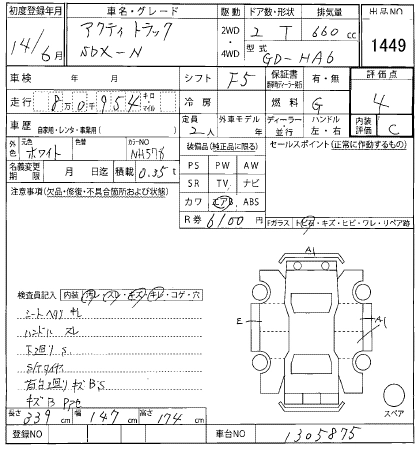 初度登録年月 車名・グレード 駆動 ドア数・形状 排気量 出品NO
14/6月 アクティ トラック SDX-N 2WD・4WD 2 T 660cc 1449
型式 GD-HA6
車検 年 月 シフト F5 保証書 有・無 評価点 4
走行 8万0千954 キロ・マイル 冷房 燃料 G
車歴 自家用・レンタ・事業用( ) 定員 2人 外車モデル年 ディーラー・並行 ハンドル 左・右 内装評価 C
外色 元色 ホワイト カラーNO NH578 装備品(純正品に限る) セールスポイント(正常に作動するもの)
名義変更期限 月 日迄 積載 0.35t
PS PW AW
SR TV ナビ
カワ エアB ABS
R券 6100円
注意事項(欠品・修復・不具合箇所および状態)
Fガラス トビ石・キズ・ヒビ・ワレ・リペア跡
A1
E
A1
検査員記入 内装 汚レ・スレ・キズ・キレ・コゲ・穴
シートヘタリ キレ
ハンドル スレ
下回りS
S/Tタイヤ
荷台回り キズ B'S
キズ B
スペア
長さ 339cm 幅 147cm 高さ 174cm
登録NO 車台NO 1305875